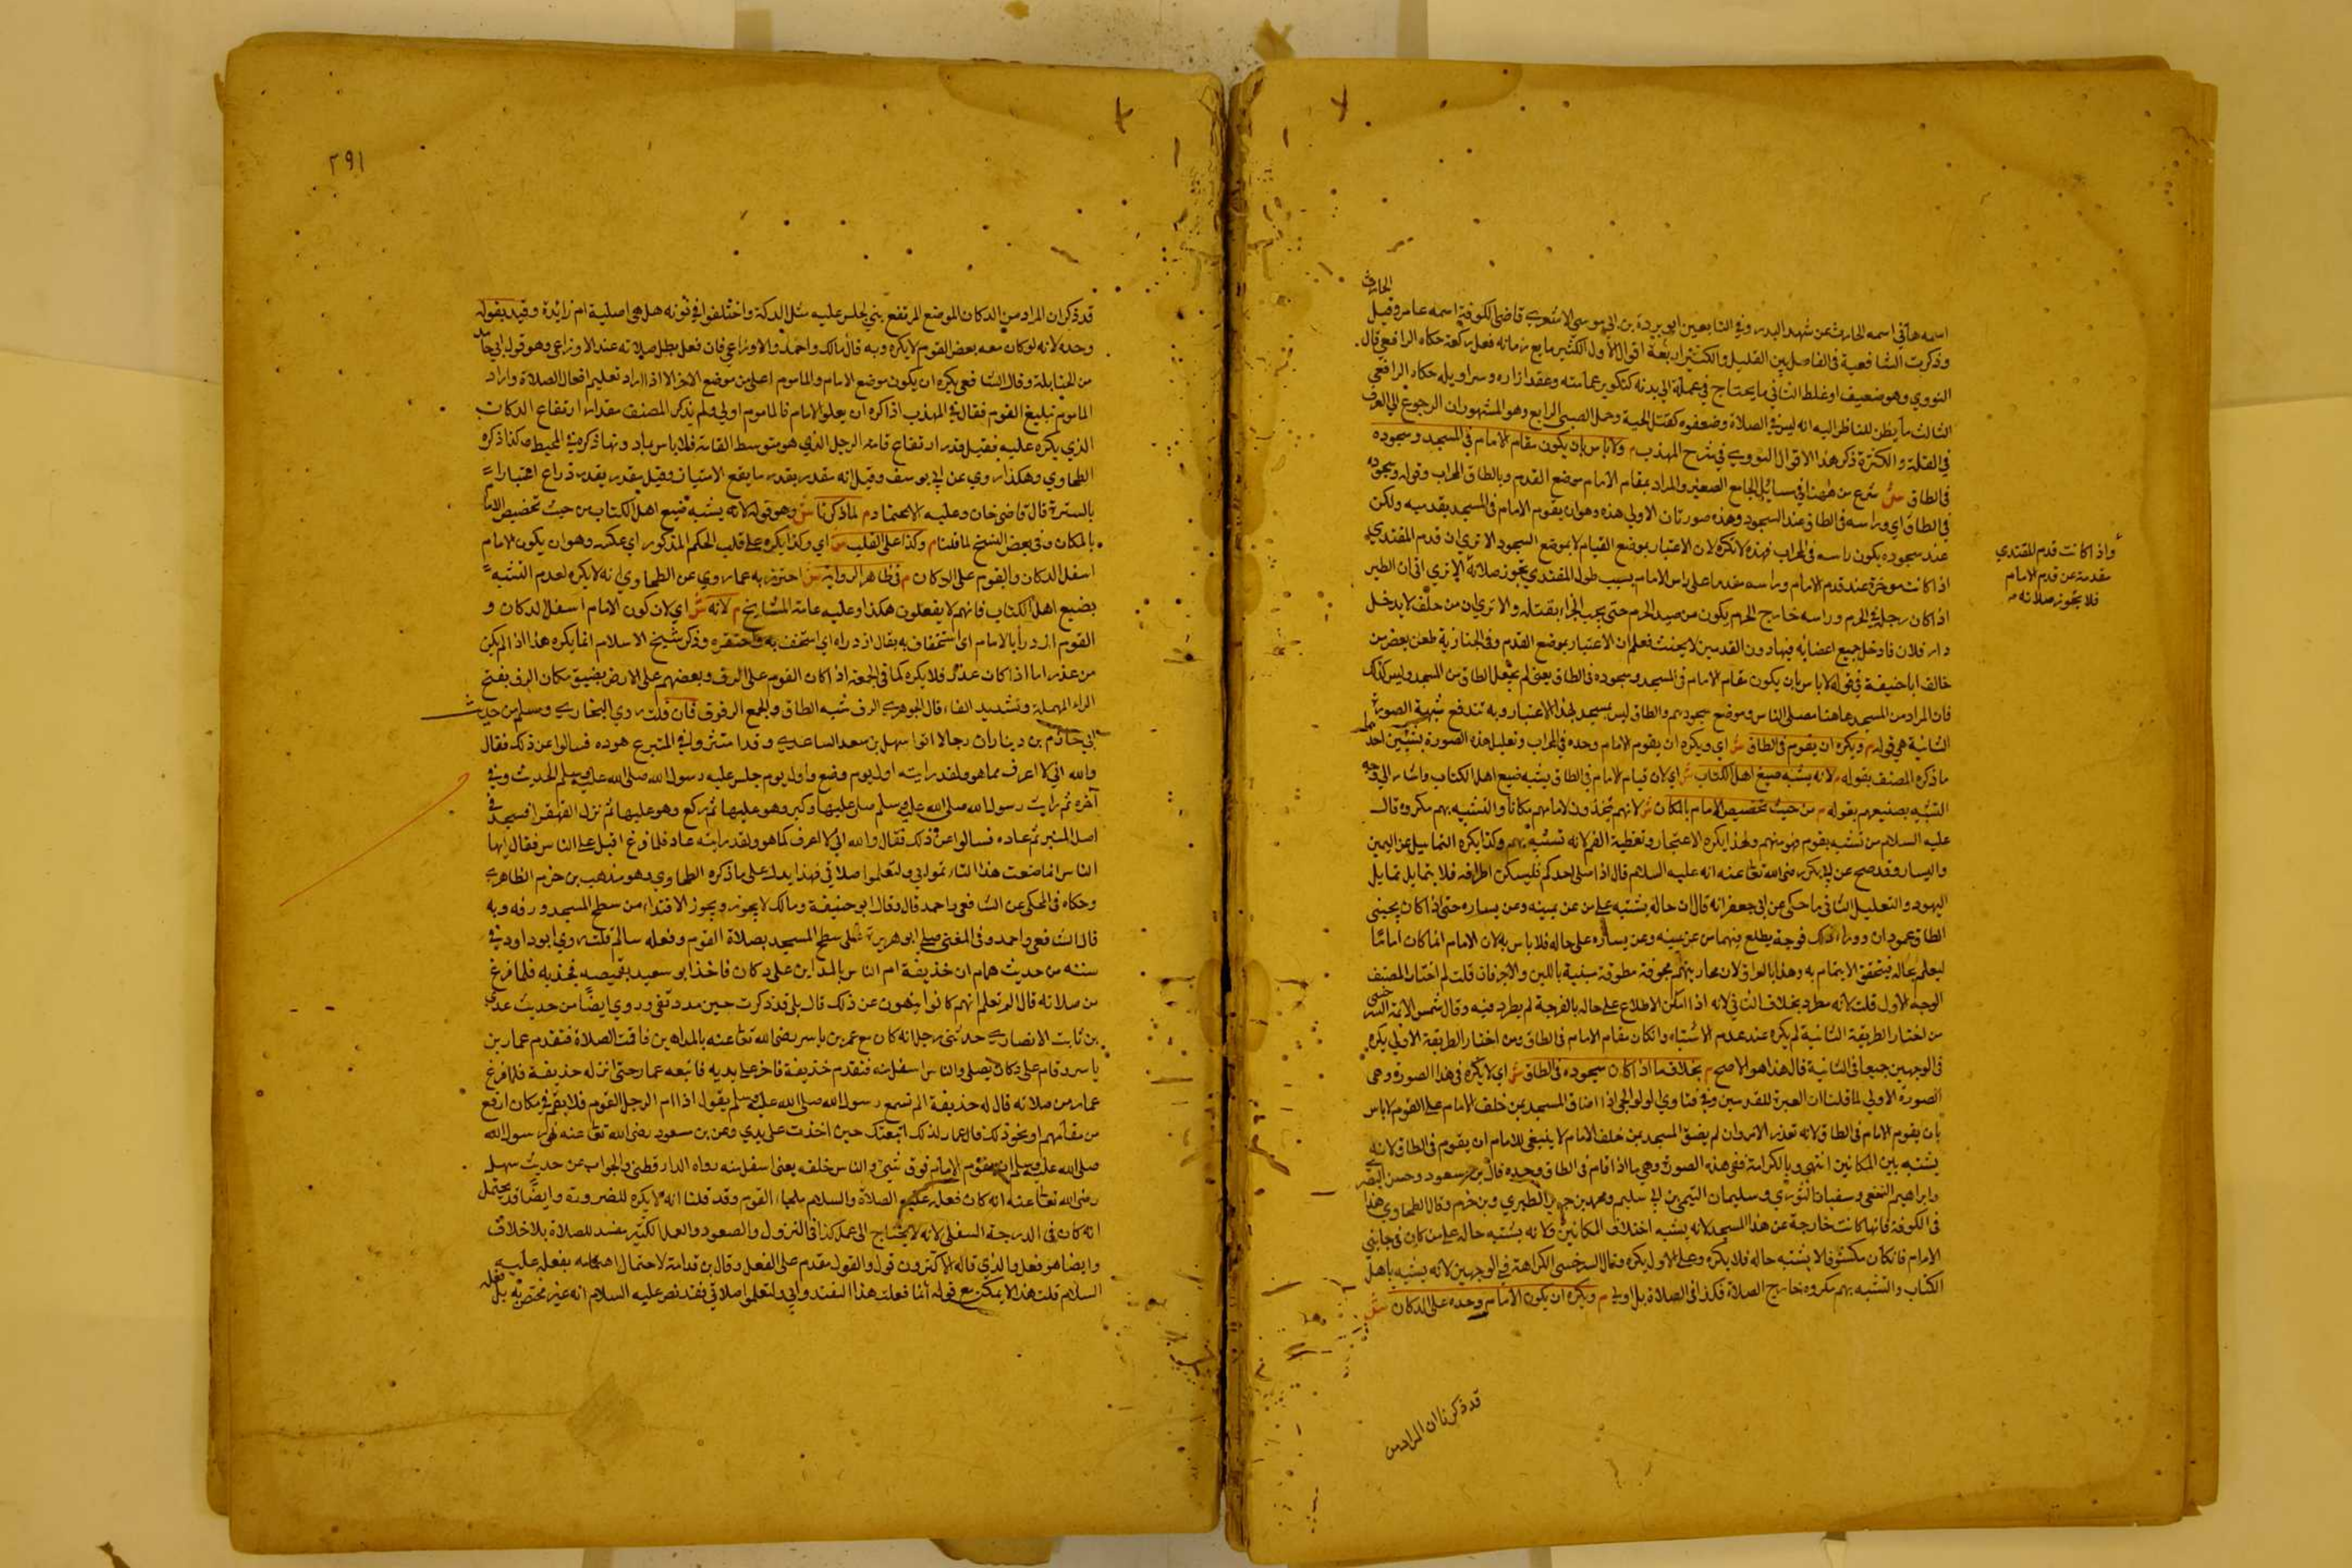 الحارث
اسمه هانى اسمه الحارث عن شهد البدر وفي التابعين ابو بردة بن ابى موسي الاشعري قاضى الكوفة اسمه عامر وقيل
وذكرت الشافعية فى الفاصل بين القليل والكثير اربعة اقوال الاول الكثير ما يع زمانه فعل ركعة حكاه الرافعي قال
النووي وهو ضعيف او غلط الثانى ما يحتاج فى عمله الى يديه كتكوير عمامته وعقد ازاره وسراويله حكاه الرافعي
الثالث ما يظن للناظر اليه انه ليس فى الصلاة وضعفوه كقتل الحية وحمل الصبي الرابع وهو المشهوران الرجوع الي العرف
فى القلة والكثرة ذكر هذا الاقوال النووي فى شرح المهذب م ولا باس بان يكون مقام الامام فى المسجد وسجوده
فى الطاق ش شرع من ههنا فى مسائل الجامع الصغير والمراد بمقام الامام موضع القدم وبالطاق المحراب وقوله وسجوده
فى الطاق اي وراسه فى الطاق عند السجود وهذه صورتان الاولى هذه وهو ان يقوم الامام فى المسجد بقدميه ولكن
عند سجوده يكون راسه فى المحراب فهذه لا تكره لان الاعتبار بموضع القيام لا بموضع السجود الا تري ان قدم المقتدي
اذا كانت موخرة عند قدم الامام وراسه مقدما على راس الامام بسبب طول المقتدي تجوز صلاته الا تري ان الطير
اذا كان رجله فى الحرم وراسه خارج الحرم يكون من صيد الحرم حتى يجب الجزاء بقتله والا تري ان من حلف لا يدخل
دار فلان فادخل جميع اعضائه فيها دون القدمين لا يحنث فعلم ان الاعتبار بموضع القدم وفى الجنازية طعن بعض من
خالف ابا حنيفة فى قوله لا باس بان يكون مقام الامام فى المسجد وسجوده فى الطاق يعنى لم يجعل الطاق من المسجد وليس كذلك
فان المراد من المسجد هاهنا مصلى الناس وموضع سجودهم والطاق ليس بمسجد لهذا الاعتبار وبه تندفع شبهة الصورة
الثانية هى قوله م ويكره ان يقوم فى الطاق ش اي ويكره ان يقوم الامام وحده فى المحراب وتعليل هذه الصورة بشيئين احدهما
ما ذكره المصنف بقوله م لانه يشبه صنيع اهل الكتاب ش اي لان قيام الامام فى الطاق يشبه صنيع اهل الكتاب واشار الى وجه
التشبيه بصنيعهم بقوله م من حيث تخصيص الامام بالمكان ش لانهم يتخذون لامامهم مكانا والتشبيه بهم مكروه قال
عليه السلام من تشبه بقوم فهو منهم ولهذا يكره الاعتجار وتغطية الفم لانه تشبه بهم وكذا يكره التمايل عن اليمين
واليسار وقد صح عن ابى بكر رضى الله تعا عنه انه عليه السلام قال اذا صلى احدكم فليسكن اطرافه فلا يتمايل تمايل
اليهود والتعليل الثانى ما حكى عن ابى جعفر انه قال ان حاله يشتبه على من عن يمينه وعن يساره حتى اذا كان بجنبى
الطاق عمودان ووراء ذلك فرجة يطلع منهما من عن يمينه وعن يساره على حاله فلا باس به لان الامام انما كان اماما
ليعلم بحاله فيتحقق الايتمام به وهذا بالعراق لان محاريبهم مجوفة مطوقة مبنية باللبن والاجر فان قلت لم اختار المصنف
الوجه الاول قلت لانه مطرد بخلاف الثانى لانه اذا امكن الاطلاع على حاله بالفرجة لم يطرد فيه وقال شمس الائمة السرخسى
من اختار الطريقة الثانية لم يكره عند عدم الاشتباه وان كان مقام الامام فى الطاق ومن اختار الطريقة الاولى يكره
فى الوجهين جميعا فى الثانية قال هذا هو الاصح م بخلاف ما اذا كان سجوده فى الطاق ش اي لا يكره فى هذا الصورة وهى
الصورة الاولى لما قلنا ان العبرة للقدمين وفى فتاوى الولوالجى اذا ضاق المسجد بمن خلف الامام على القوم لا باس
بان يقوم الامام فى الطاق لانه تعذر الامر وان لم يضق المسجد بمن خلف الامام لا ينبغى للامام ان يقوم فى الطاق لانه
يشبه بين المكانين انتهى وبالكراهة ففى هذه الصورة وهى ما اذا قام فى الطاق وحده قال بن مسعود وحسن البصرى
وابراهيم النخعى وسفيان الثوري وسليمان التيمى ولي سليم ومحمد بن جرير الطبري وبن حزم وقال الطحاوي هذا
فى الكوفة فانها كانت خارجة عن هذا المسجد لانه يشبه اختلاف المكانين ولانه يشتبه حاله على من كان فى جانبى
الامام فان كان مكشوفا لا يشتبه حاله فلا يكره وعلى الاول يكره وقال السرخسى الكراهة فى الوجهين لانه يشبه باهل
الكتاب والتشبه بهم مكروه خارج الصلاة فكذا فى الصلاة بل اولى م ويكره ان يكون الامام وحده على الدكان ش
واذا كانت قدم المقتدي
مقدمة عن قدم الامام
فلا تجوز صلاته م
قد ذكرنا ان المراد من
٢٩١
قد ذكر ان المراد من الدكان الموضع المرتفع يبنى للجلس عليه مثل الدكة واختلفوا فى نونه هل هى اصلية ام زائدة وقيد بقوله
وحده لانه لو كان معه بعض القوم لا يكره وبه قال مالك واحمد والاوزاعي فان فعل بطل صلاته عند الاوزاعى وهو قول ابى حامد
من الحنابلة وقال الشافعى يكره ان يكون موضع الامام والماموم اعلى من موضع الاخر الا اذا اراد تعليم افعال الصلاة واراد
الماموم تبليغ القوم فقال فى المهذب اذا كره ان يعلو الامام فالماموم اولي ولم يذكر المصنف مقدار ارتفاع الدكان
الذي يكره عليه فقيل قدر ارتفاع قامة الرجل الذي هو متوسط القامة فلا باس بما دونها ذكره فى المحيط هكذا ذكره
الطحاوي وهكذا روي عن ابى يوسف وقيل انه مقدر بقدر ما يقع الامتياز وقيل مقدر بقدر ذراع اعتبارا
بالسترة قال قاضى خان وعليه الاعتماد م لما ذكرنا ش وهو قوله لانه يشبه صنيع اهل الكتاب من حيث تخصيص الامام
بالمكان وفى بعض النسخ لما قلنا م وكذا على القلب ش اي وكذا يكره على قلب الحكم المذكور اي عكسه وهو ان يكون الامام
اسفل الدكان والقوم على الدكان م فى ظاهر الرواية ش احترز به عما روي عن الطحاوي انه لا يكره لعدم التشبه
بصنيع اهل الكتاب فانهم لا يفعلون هكذا وعليه عامة المشايخ م لانه ش اي لان كون الامام اسفل الدكان و
القوم ازدرأ بالامام اى استخفاف به يقال ازدراه اي استخف به واحتقره وذكر شيخ الاسلام انما يكره هذا اذا لم يكن
من عذر اما اذا كان عذر فلا يكره كما فى الجمعة اذا كان القوم على الرف وبعضهم على الارض بضيق مكان الرف بفتح
الراء المهملة وتشديد الفاء قال الجوهري الرف شبه الطاق والجمع الرفوف فان قلت روي البخاري ومسلم من حديث
ابى حازم بن دينار ان رجالا اتوا سهل بن سعد الساعدي وقد امتروا فى المنبر عوده فسالوا عن ذلك فقال
والله انى لا اعرف مما هو ولقد رايته اول يوم وضع واول يوم جلس عليه رسول الله صلى الله عليه وسلم الحديث وفى
آخره ثم رايت رسول الله صلى الله عليه وسلم صلى عليها وكبر وهو عليها ثم ركع وهو عليها ثم نزل القهقرا فسجد فى
اصل المنبر ثم عاده فسالوا عن ذلك فقال والله انى لا اعرف كما هو ولقد رايته عاد فلما فرغ اقبل على الناس فقال ايها
الناس انما صنعت هذا لتاتموا بي ولتعلموا صلاتى فهذا يدل على ما ذكره الطحاوي وهو مذهب بن حزم الظاهري
وحكاه فى المحكى عن الشافعى واحمد قال وقال ابو حنيفة ومالك لا يجوز ويجوز الاقتداء من سطح المسجد ورفه وبه
قال الشافعى واحمد وفى المغنى صلى ابو هريرة على سطح المسجد بصلاة القوم وفعله سالم قلت روي ابو داود فى
سننه من حديث همام ان حذيفة ام الناس بالمداين على دكان فاخذ ابو سعيد بقميصه فجذبه فلما فرغ
من صلاته قال الم تعلم انهم كانوا ينهون عن ذلك قال بلى قد ذكرت حين مددتنى وروي ايضا من حديث عدي
بن ثابت الانصاري حدثنى رجل انه كان مع عمر بن ياسر رضى الله تعا عنه بالمداين فاقت الصلاة فتقدم عمار بن
ياسر وقام على دكان يصلى والناس اسفل منه فتقدم حذيفة فاخذ على يديه فاتبعه عمار حتى انزله حذيفة فلما فرغ
عمار من صلاته قال له حذيفة الم تسمع رسول الله صلى الله عليه وسلم يقول اذا ام الرجل القوم فلا يقم فى مكان ارفع
من مقامهم او نحو ذلك قال عمار لذلك اتبعتك حين اخذت على يدي وعن بن مسعود رضى الله تعا عنه نهى رسول الله
صلى الله عليه وسلم ان يقوم الامام فوق شئ والناس خلفه يعنى اسفل منه رواه الدارقطنى والجواب عن حديث سهل
رضى الله تعا عنه انه كان فعله عليه الصلاة والسلام القوم وقد قلنا انه لا يكره للضرورة وايضا قد يحتمل
انه كان فى الدرجة السفلى لانه لا يحتاج الى عمل كذا فى النزول والصعود والعمل الكثير مفسد للصلاة بلا خلاف
وايضا هو فعل والذي قاله الاكثرون قول والقول مقدم على الفعل وقال بن قدامة لاحتمال اختصاصه بفعله عليه
السلام قلت هذا لا يمكن مع قوله انما فعلت هذا لتقتدوا بي ولتعلموا صلاتى فقد نص عليه السلام انه غير مختص به بل فعله